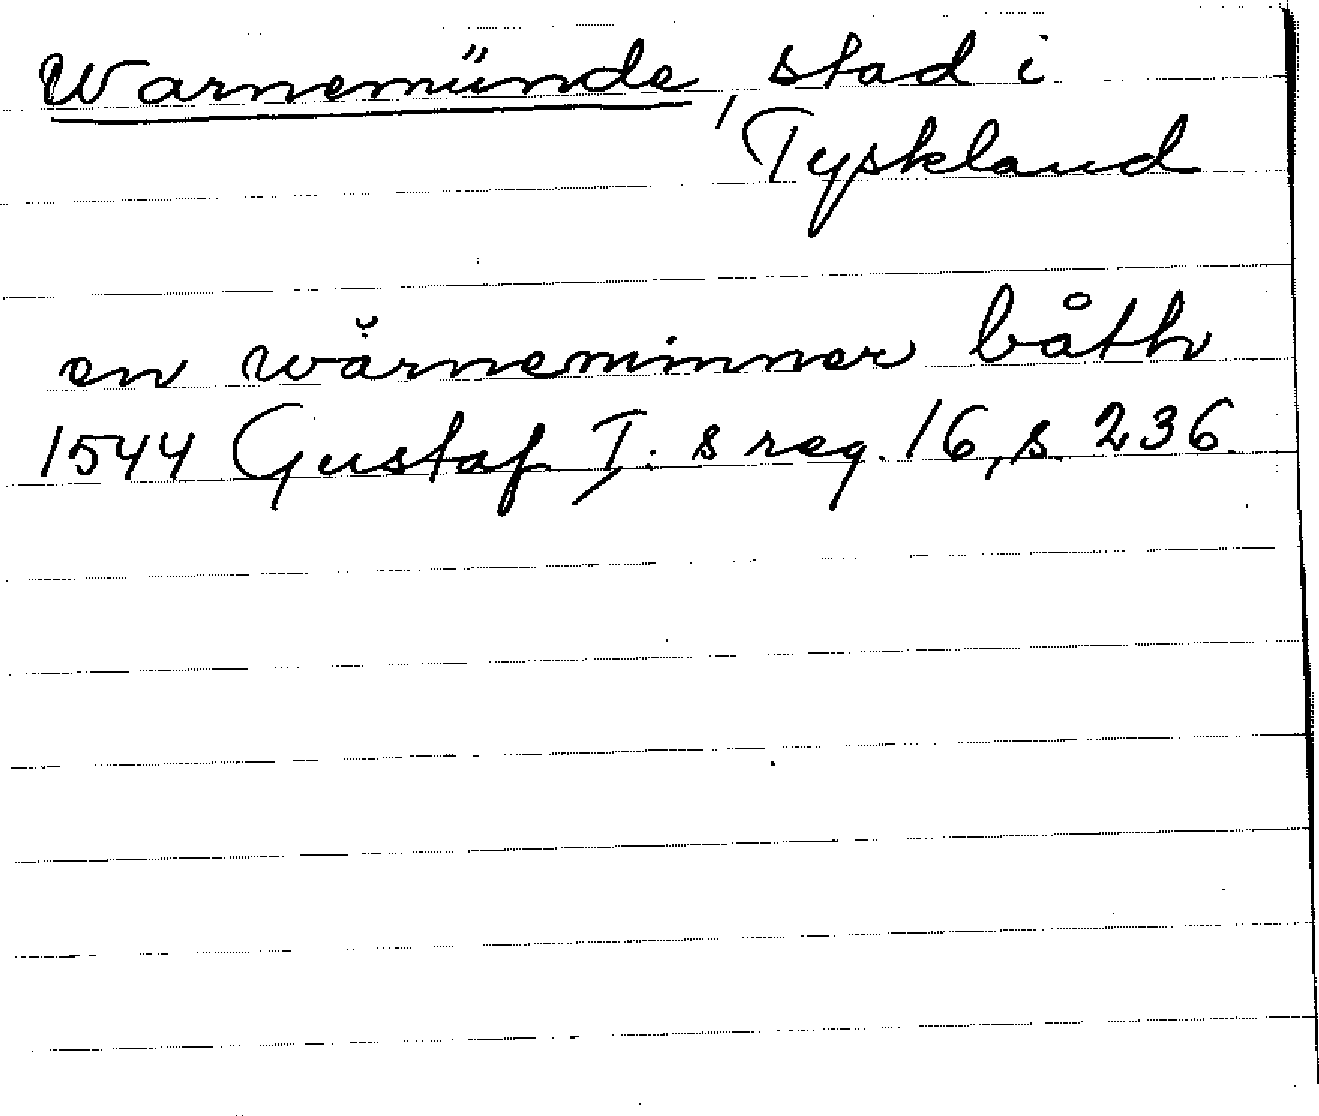 Warnemünde, stad i
Tyskland
en wärneminner båth
1544 Gustaf I:s reg. 16, s. 236.